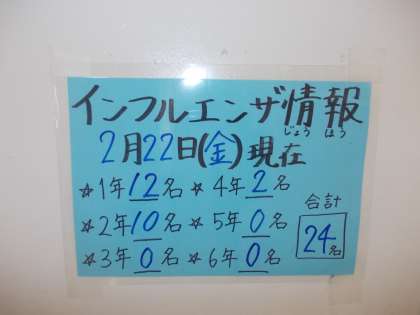 インフルエンザ情報
じょう ほう
2月22日(金)現在
☆1年12名 ☆4年2名
☆2年10名 ☆5年0名
☆3年0名 ☆6年0名
合計
24名